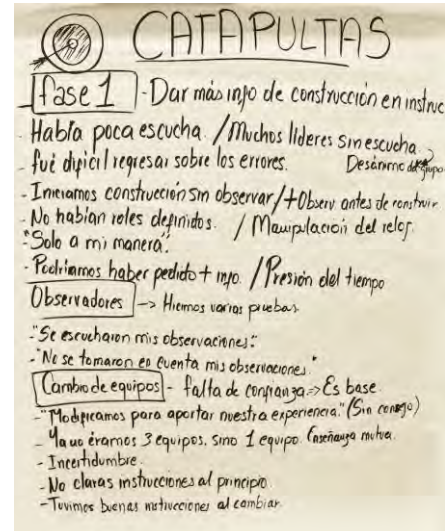 CATAPULTAS
fase 1 - Dar más info de construcción en instruc
- Había poca escucha. / Muchos líderes sin escucha
- fué dificil regresar sobre los errores. Desánimo del grupo
- Iniciamos construcción sin observar / + Observ antes de construir
- No habían roles definidos. / Manipulación del reloj.
- "Solo a mi manera".
- Podriamos haber pedido + info. / Presión del tiempo
Observadores -> Hicimos varias pruebas
- "Se escucharon mis observaciones."
- "No se tomaron en cuenta mis observaciones."
Cambio de equipos - falta de confianza => Es base
- "Modificamos para aportar nuestra experiencia." (Sin consejo)
- Ya no éramos 3 equipos, sino 1 equipo. Enseñanza mutua.
- Incertidumbre.
- No claras instrucciones al principio
- Tuvimos buenas instrucciones al cambiar.